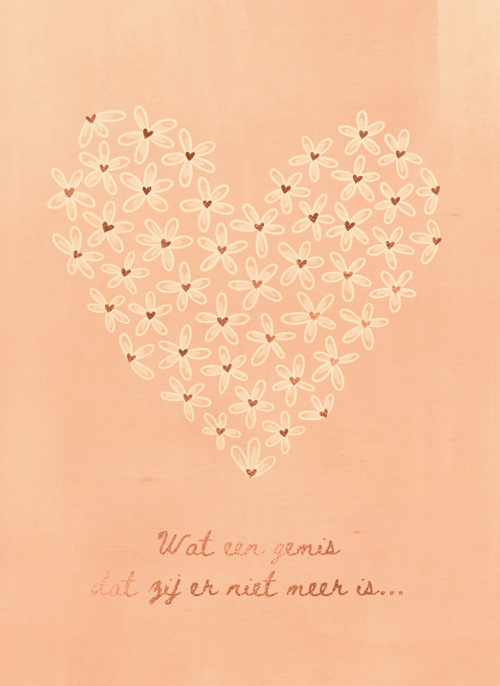 Wat een gemis
dat zij er niet meer is...